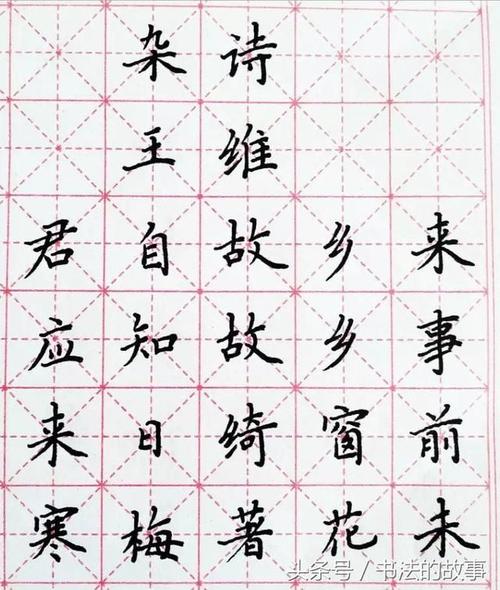 杂诗
王维
君自故乡来
应知故乡事
来日绮窗前
寒梅著花未
头条号／书法的故事